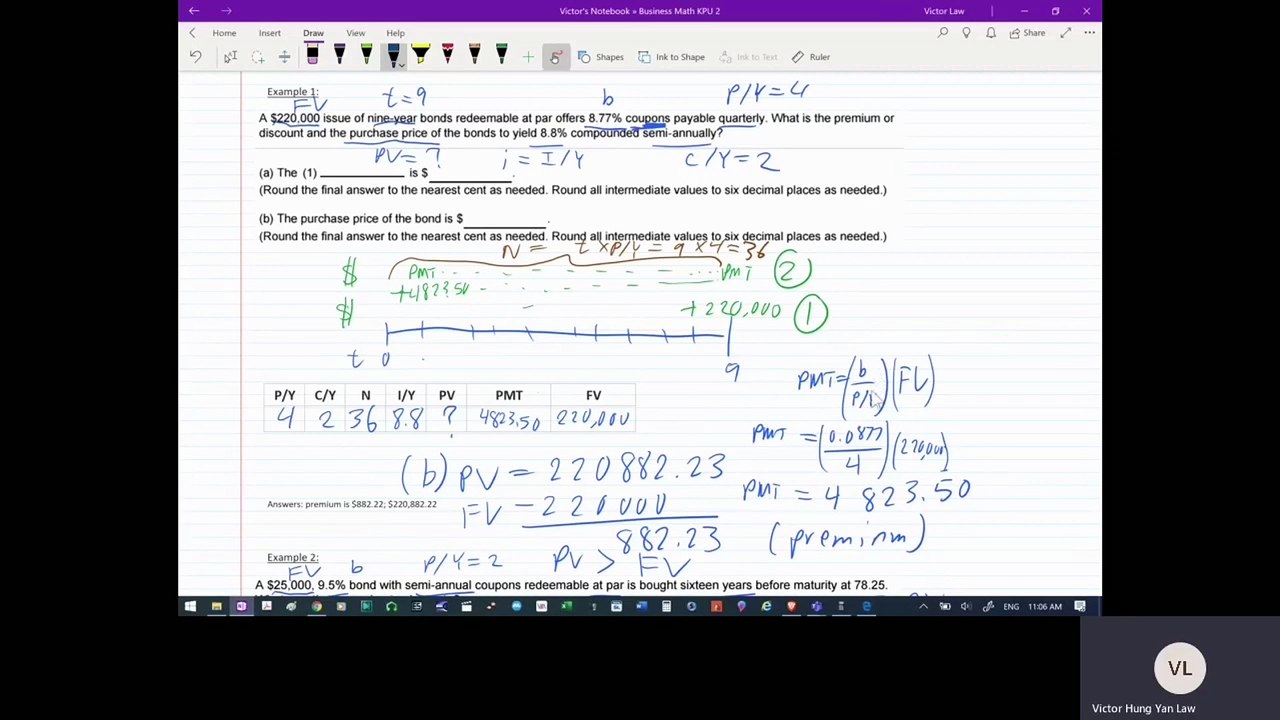 Victor's Notebook » Business Math KPU 2
Victor Law
Home Insert Draw View Help
Share
Shapes Ink to Shape Ink to Text Ruler
Example 1:
FV t=9 b P/Y=4
A $220,000 issue of nine-year bonds redeemable at par offers 8.77% coupons payable quarterly. What is the premium or
discount and the purchase price of the bonds to yield 8.8% compounded semi-annually?
PV=? i = I/Y C/Y=2
(a) The (1) __________ is $__________.
(Round the final answer to the nearest cent as needed. Round all intermediate values to six decimal places as needed.)
(b) The purchase price of the bond is $__________.
(Round the final answer to the nearest cent as needed. Round all intermediate values to six decimal places as needed.)
N = t×P/Y = 9 ×4=36
$ PMT PMT 2
+4823.50
$ +220,000 1
t 0 9
PMT=(b/P/Y)(FV)
P/Y C/Y N I/Y PV PMT FV
4 2 36 8.8 ? 4823.50 220,000
PMT = (0.0877/4)(220,000)
(b) PV = 220882.23
PMT = 4 823.50
Answers: premium is $882.22; $220,882.22
FV - 220000
882.23 (premium)
Example 2:
PV > FV
FV b P/Y=2
A $25,000, 9.5% bond with semi-annual coupons redeemable at par is bought sixteen years before maturity at 78.25.
ENG 11:06 AM
VL
Victor Hung Yan Law